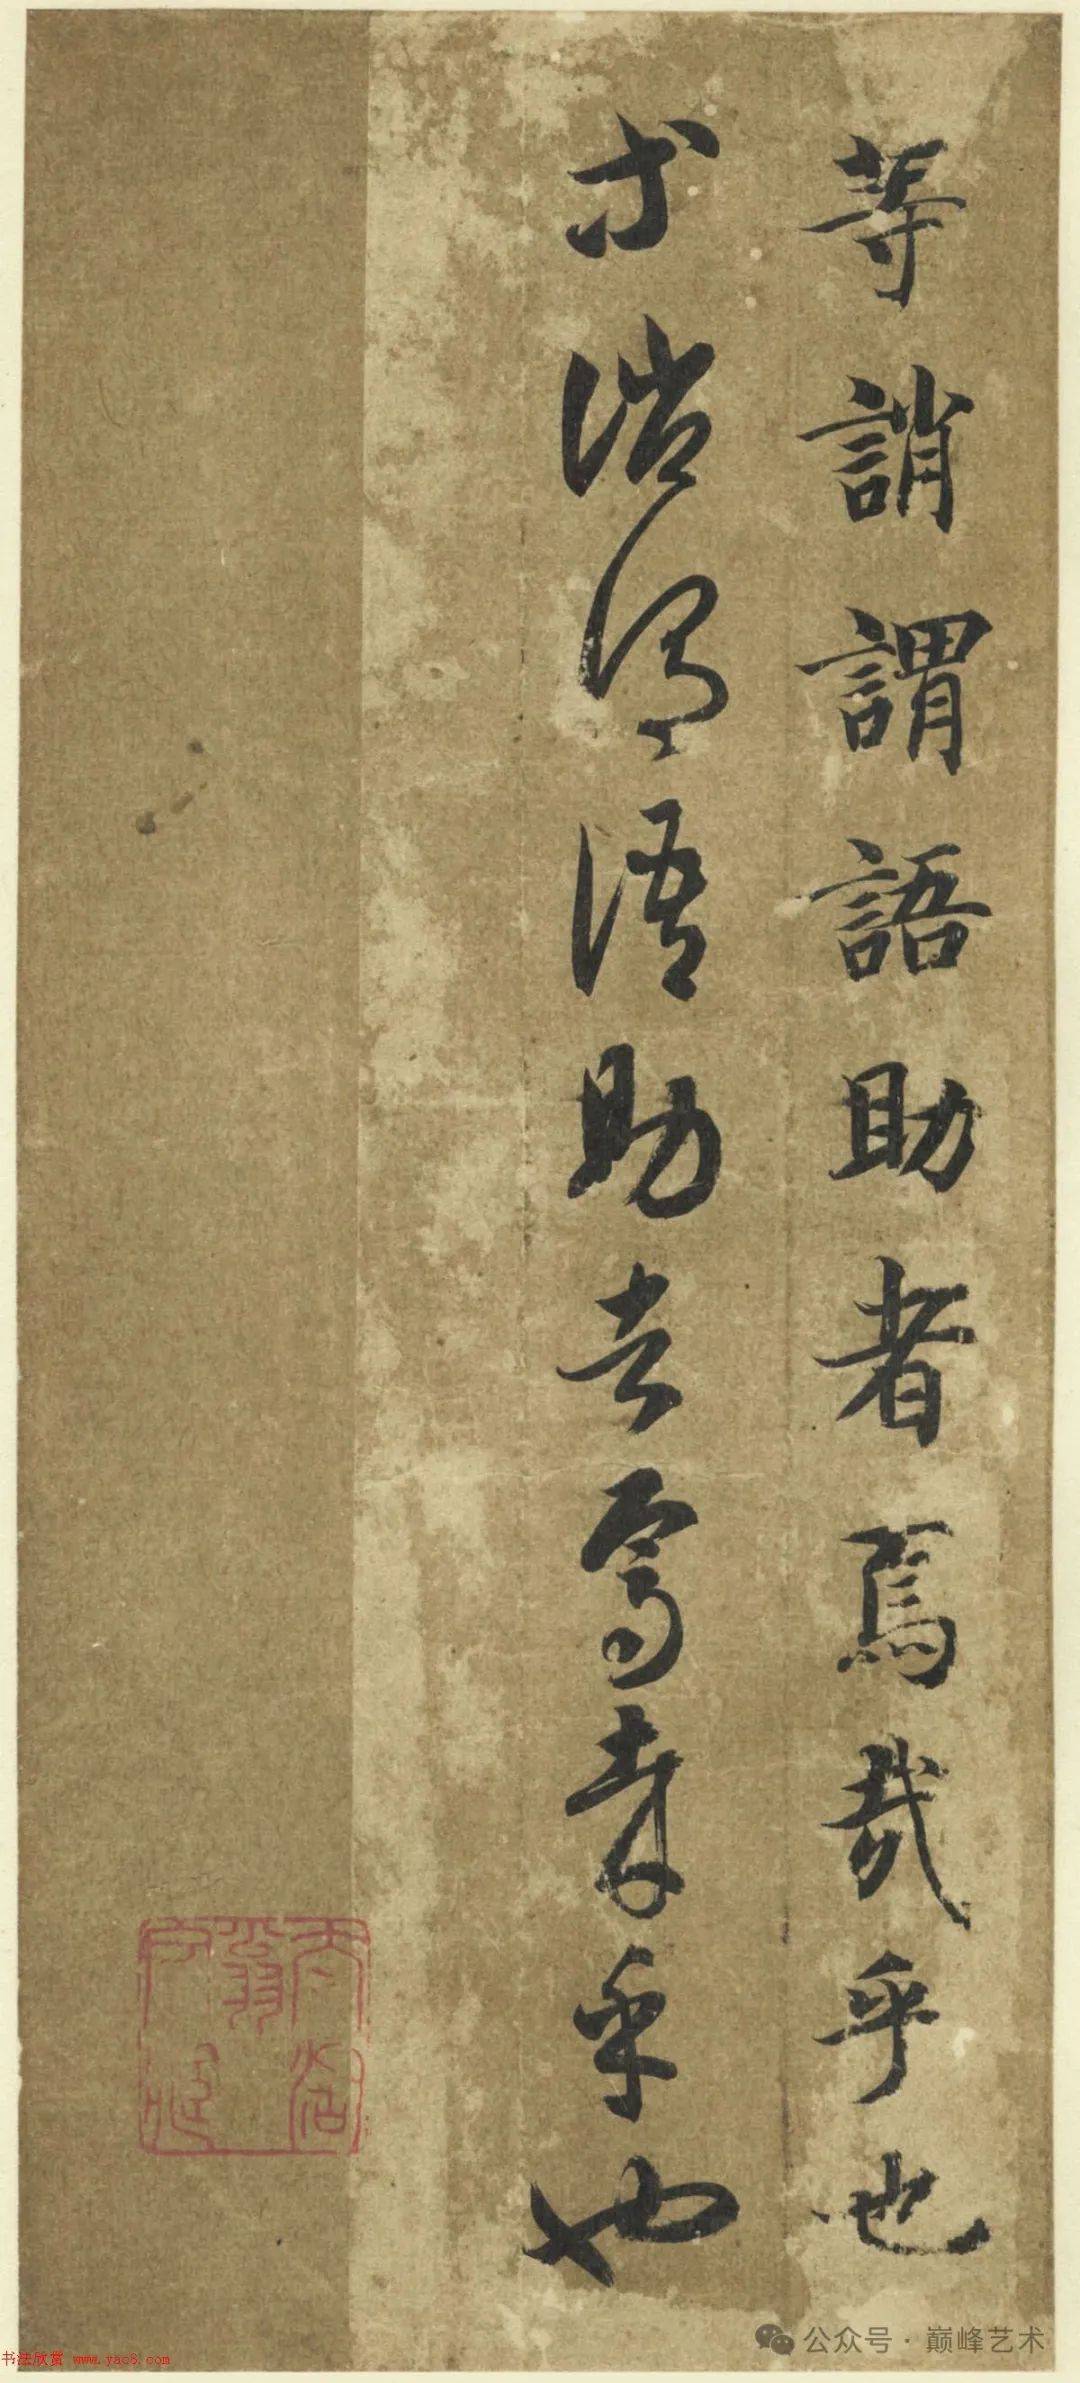 等誚謂語助者焉哉乎也
等誚謂語助者焉哉乎也
公众号·巅峰艺术
书法欣赏 www.yac8.com